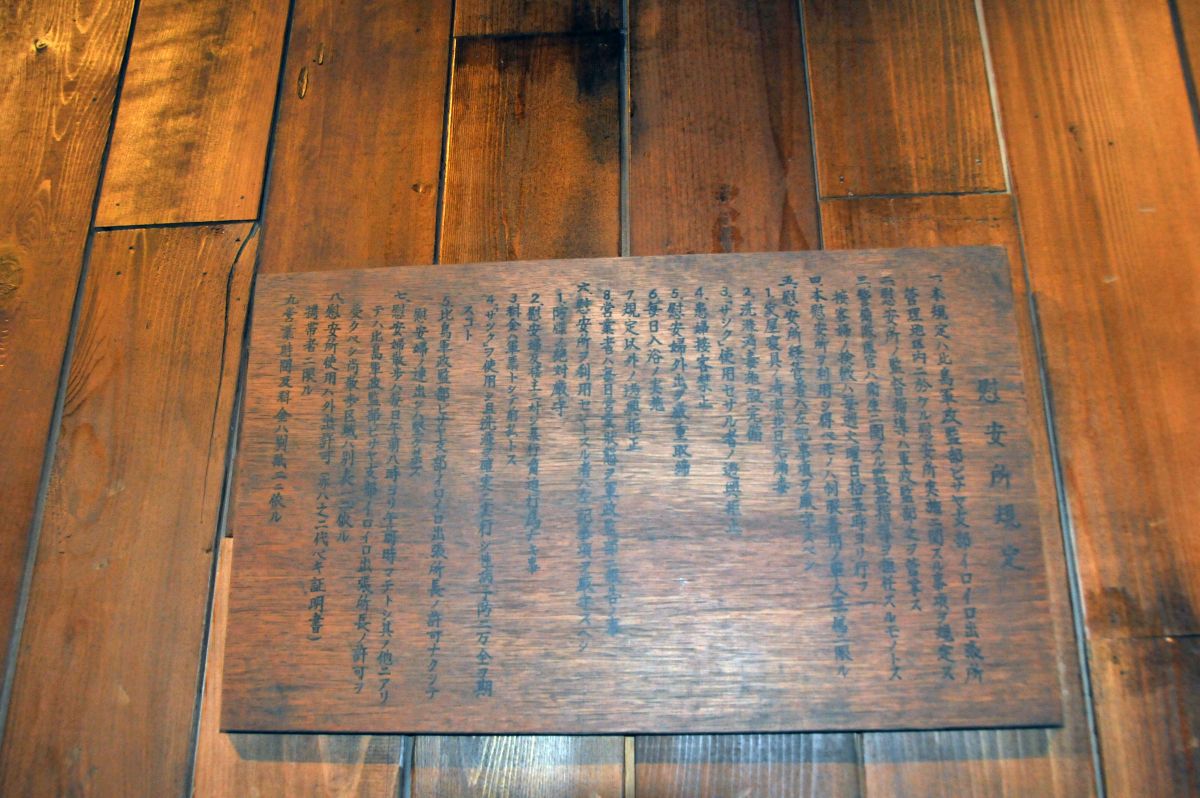 慰安所規定
一、本規定ハ比島軍政監部ビサヤ支部イロイロ出張所
管理地区内ニ於ケル慰安所実施ニ関スル事項ヲ規定ス
二、慰安所ノ監督指導ハ軍政監部之ヲ管掌ス
三、警備隊医官ハ衛生ニ関スル監督指導ヲ担任スルモノトス
接客婦ノ検黴ハ毎週火曜日拾五時ヨリ行フ
四、本慰安所ヲ利用シ得ベキモノハ制服着用ノ軍人軍属ニ限ル
五、慰安所経営者ハ左記事項ヲ厳守スベシ
1.家屋寝具ノ清潔並日光消毒
2.洗滌消毒施設完備
3.「サック」使用セサル者ノ遊興拒止
4.患婦接客禁止
5.慰安婦外出ヲ厳重取締
6.毎日入浴ノ実施
7.規定以外ノ遊興拒止
8.営業者ハ毎日営業状態ヲ軍政監部ニ報告ノ事
六、慰安所ヲ利用セントスル者ハ左記事項ヲ厳守スベシ
1.防諜ノ絶対厳守
2.慰安婦及楼主ニ対シ暴行脅迫行為ナキ事
3.料金ハ軍票トシテ前払トス
4.「サック」ヲ使用シ且洗滌ヲ確実ニ実行シ性病予防ニ万全ヲ期
スコト
5.比島軍政監部ビサヤ支部イロイロ出張所長ノ許可ナクシテ
慰安婦ノ連出シハ堅ク禁ズ
七、慰安婦散歩ハ毎日午前八時ヨリ午前十時マデトシ其ノ他ニアリ
テハ比島軍政監部ビサヤ支部イロイロ出張所長ノ許可ヲ
受クベシ尚散歩区域ハ別表一ニ依ル
八、慰安所使用ハ外出許可証(亦ハ之ニ代ベキ証明書)
携帯者ニ限ル
九、営業時間及料金ハ別紙二ニ依ル